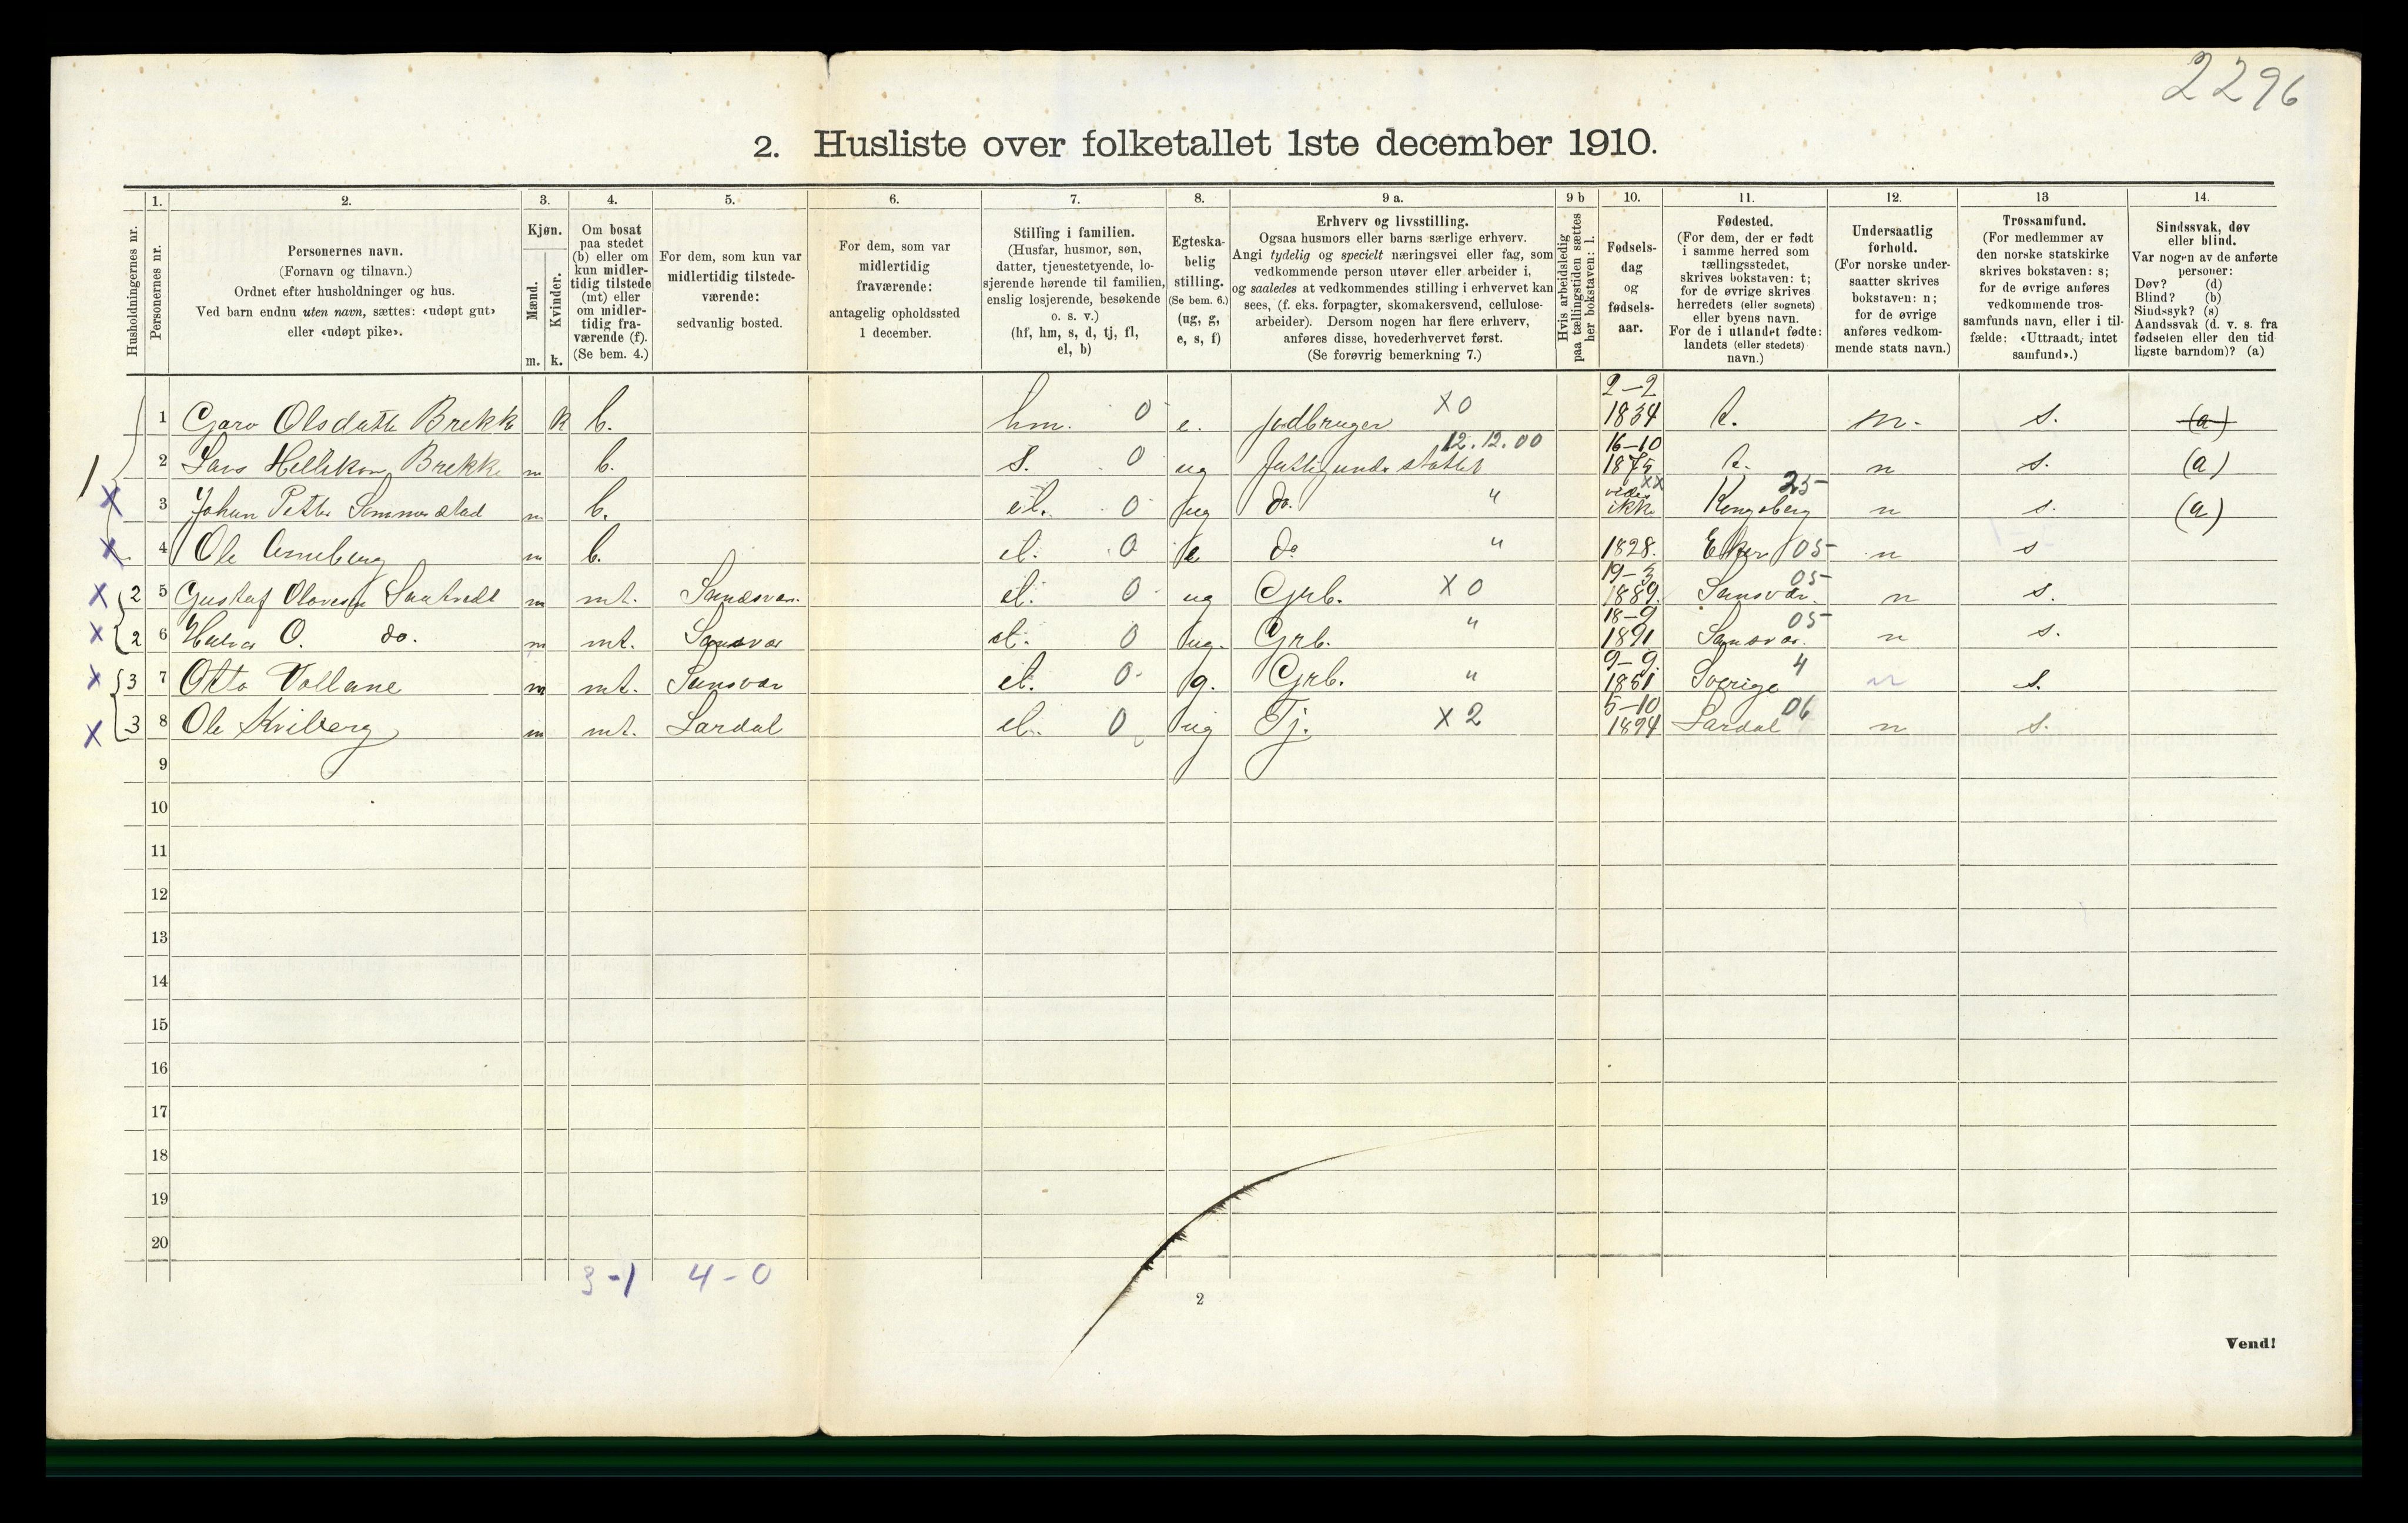 2296
2. Husliste over folketallet 1ste december 1910.
Husholdningernes nr.
1.
Personernes nr.
2.
Personernes navn.
(Fornavn og tilnavn.)
Ordnet efter husholdninger og hus.
Ved barn endnu uten navn, sættes: «udøpt gut»
eller «udøpt pike».
3.
Kjøn.
Mænd.
Kvinder.
m. k.
4.
Om bosat
paa stedet
(b) eller om
kun midler-
tidig tilstede
(mt) eller
om midler-
tidig fra-
værende (f).
(Se bem. 4.)
5.
For dem, som kun var
midlertidig tilstede-
værende:
sedvanlig bosted.
6.
For dem, som var
midlertidig
fraværende:
antagelig opholdssted
1 december.
7.
Stilling i familien.
(Husfar, husmor, søn,
datter, tjenestetyende, lo-
sjerende hørende til familien,
enslig losjerende, besøkende
o. s. v.)
(hf, hm, s, d, tj, fl,
el, b)
8.
Egteska-
belig
stilling.
(Se bem. 6.)
(ug, g,
e, s, f)
9 a.
Erhverv og livsstilling.
Ogsaa husmors eller barns særlige erhverv.
Angi tydelig og specielt næringsvei eller fag, som
vedkommende person utøver eller arbeider i,
og saaledes at vedkommendes stilling i erhvervet kan
sees, (f. eks. forpagter, skomakersvend, cellulose-
arbeider). Dersom nogen har flere erhverv,
anføres disse, hovederhvervet først.
(Se forøvrig bemerkning 7.)
9 b
Hvis arbeidsledig
paa tællingstiden sættes
her bokstaven: l.
10.
Fødsels-
dag
og
fødsels-
aar.
11.
Fødested.
(For dem, der er født
i samme herred som
tællingsstedet,
skrives bokstaven: t;
for de øvrige skrives
herredets (eller sognets)
eller byens navn.
For de i utlandet fødte:
landets (eller stedets)
navn.)
12.
Undersaatlig
forhold.
(For norske under-
saatter skrives
bokstaven: n;
for de øvrige
anføres vedkom-
mende stats navn.)
13
Trossamfund.
(For medlemmer av
den norske statskirke
skrives bokstaven: s;
for de øvrige anføres
vedkommende tros-
samfunds navn, eller i til-
fælde: «Uttraadt, intet
samfund».)
14.
Sindssvak, døv
eller blind.
Var nogen av de anførte
personer:
Døv? (d)
Blind? (b)
Sindssyk? (s)
Aandssvak (d. v. s. fra
fødselen eller den tid
ligste barndom)? (a)
1 Olsdatte Brekk k b. hm. 0 e. Jodbruger X0 2-2 1834 t. n. s. (a)
1 2 Lars Brekk m b. s. 0 ug 12.12.00 16-10 1875 t. n s. (a)
X 3 Johan Petter m b. el. 0 ug do. " vides ikke XX Kongsberg 25 n s. (a)
X 4 Ole m b. el. 0 e do " 1828. Eker 05 n s
X 2 5 Gustaf m mt. Sandsvær el. 0 ug Grb. X0 19-3 1889. Sansvær. 05 n s.
X 2 6 O. do. m mt. el. 0 ug. Grb. " 18-9 1891 05 n s.
X 3 7 Otto Vollane m mt. Sansvær el. 0 g. Grb. " 9-9. 1861 Sverige 4 n s.
X 3 8 Ole Kviberg m mt. Lardal el. 0 ug Tj. X2 5-10 1894 Lardal 06 n s.
9
10
11
12
13
14
15
16
17
18
19
20
3-1 4-0
2
Vend!